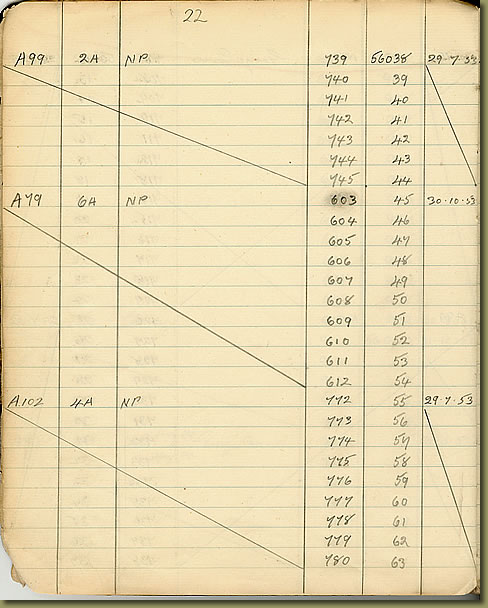 22
A99 2A NP 739 56038 29·7·53
740 39
741 40
742 41
743 42
744 43
745 44
A79 6A NP 603 45 30·10·53
604 46
605 47
606 48
607 49
608 50
609 51
610 52
611 53
612 54
A102 4A NP 772 55 29·7·53
773 56
774 57
775 58
776 59
777 60
778 61
779 62
780 63